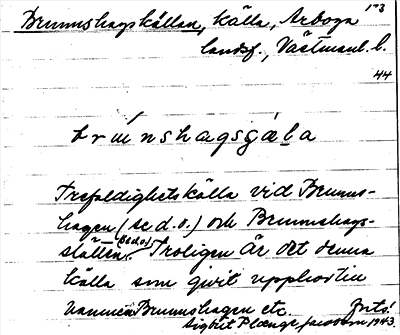 Brunnshagskällan, källa, Arboga 173
landsf., Västmanl. l.
44
brúnshagsgala
Trefaldighetskälla vid Brunns-
hagen (se d. o.) och Brunnshags-
slätten (se d. o.). Troligen är det denna
källa som givit upphov till
namnen Brunnshagen etc.
Sigbrit Plænge Jacobson 1943